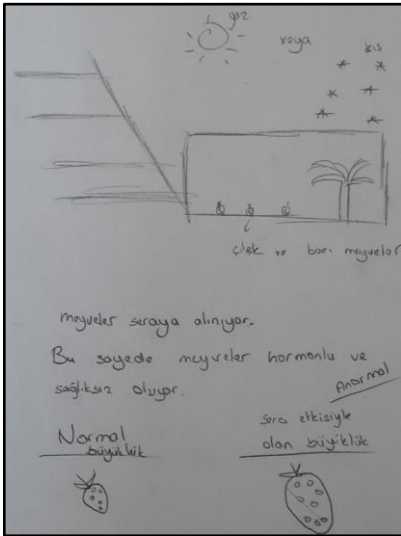 veya
kış
çilek ve bazı meyveler
meyveler seraya alınıyor.
Bu sayede meyveler hormonlu ve
sağlıksız oluyor.
Anormal
Normal
büyüklük
sera etkisiyle
olan büyüklük